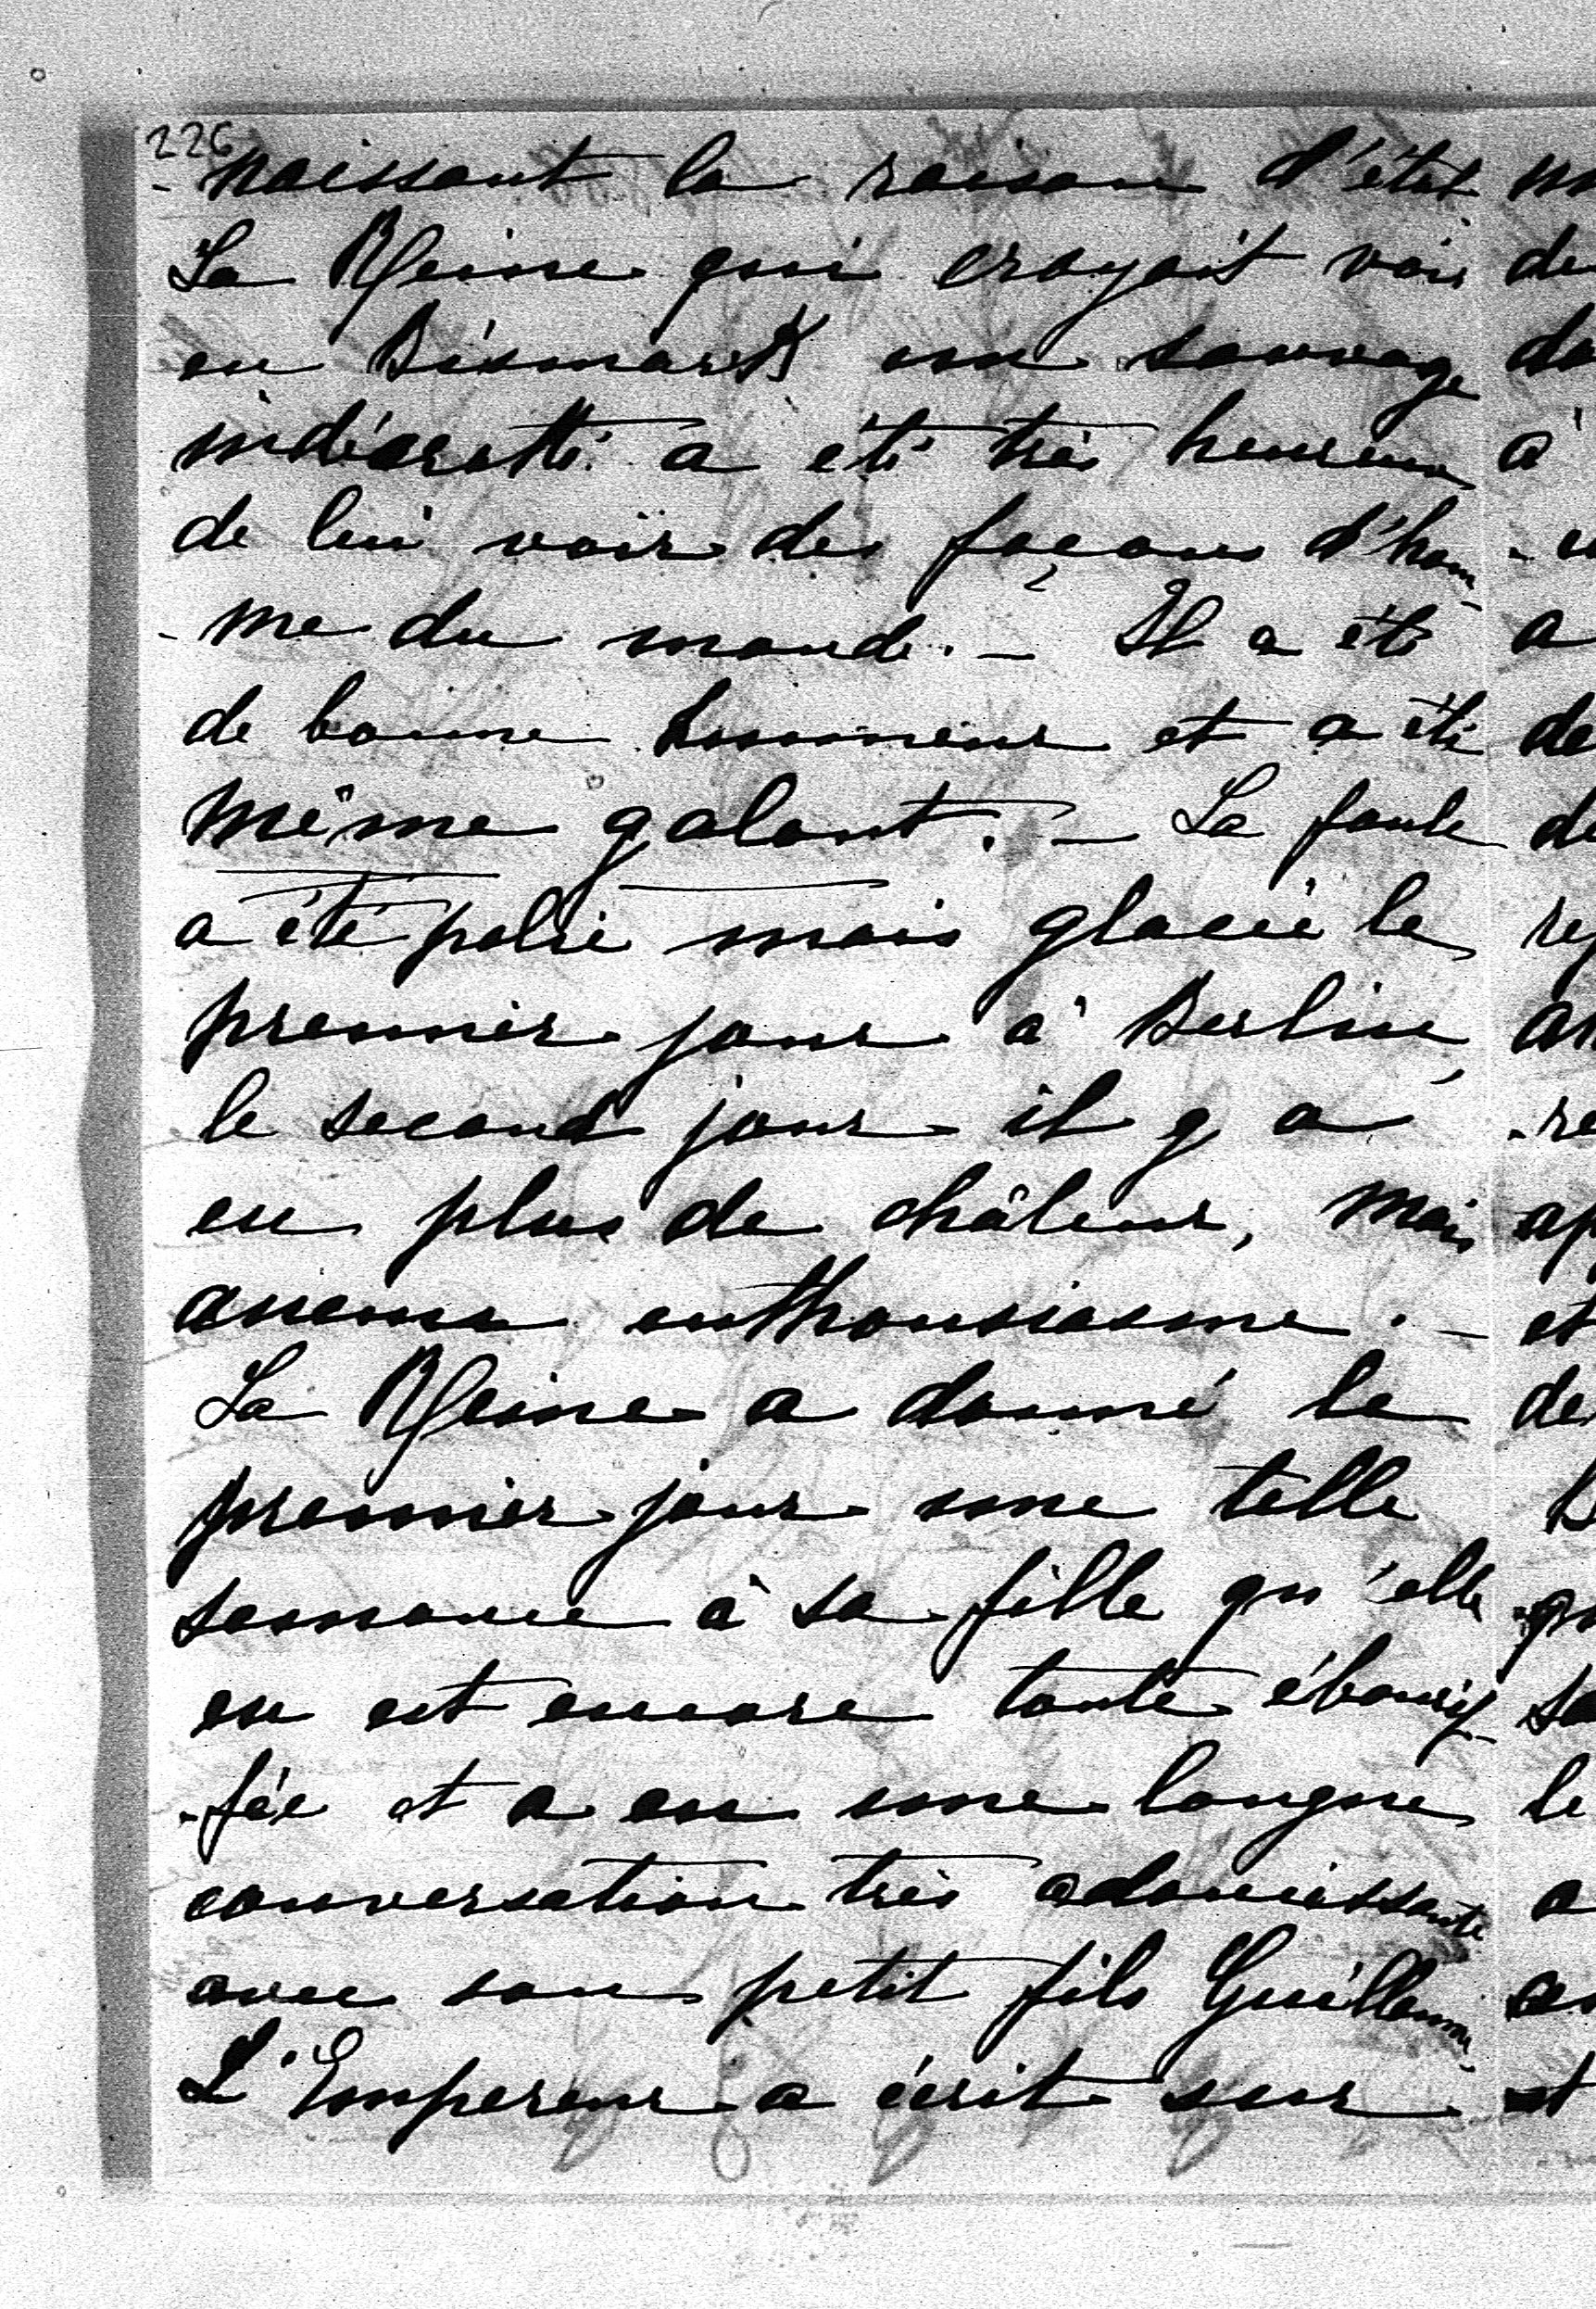 226
- naissant la raison d'état
La Reine qui croyait voir
en Bismark un sauvage
indécrotté a été très heureux
de lui voir des façons d'hom-
- me du monde. - Il a été
de bonne humeur et a été
même galant. - La foule
a été polie mais glacée le
premier jour à Berlin,
le second jour il y a
eu plus de châleur, mais
aucun enthousiasme. -
La Reine a donné le
premier jour une telle
semonce à sa fille qu'elle
en est encore toute ébourif-
- fée et a eu une longue
conversation très adoucissante
avec son petit fils Guillaume.
L'Empereur a écrit sur